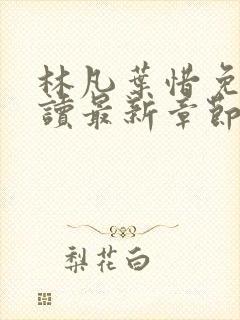 林凡葉惜免
讀最新章節
梨花白